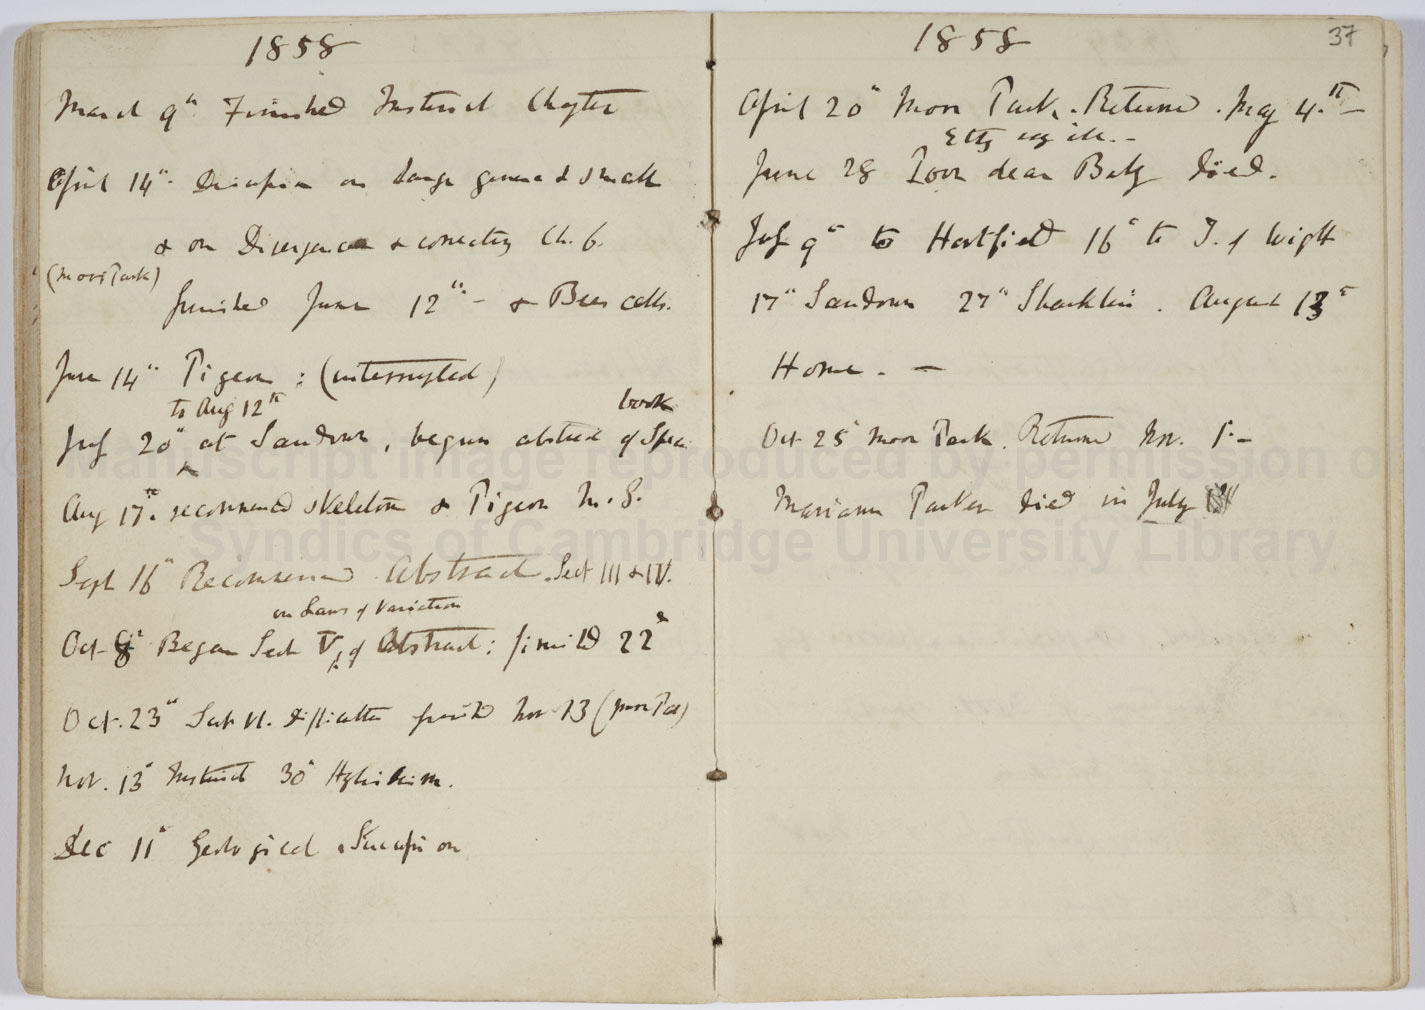 1858
March 9th Finished Instinct Chapter
April 14th Discussion on large genera & small
& on Divergence & correcting Ch. 6.
(Moor Park)
finished June 12th – & Bees cells.
June 14th Pigeons : (interrupted)
to Aug 12th
book
July 20th at Sandown, began abstract of Species
Aug 17th. recommenced skeletons & Pigeon M.S.
Sept 16th Recommenced Abstract. Sect III & IV.
on Laws of Variation
Oct 8th Began Sect V of Abstract: finished 22d
Oct. 23d Sect VI. difficulties finished Nov 13 (Moor Park)
Nov. 13th Instinct 30th Hybridism.
Dec 11th Geological Succession
1858
37
April 20th Moor Park. Returned. May 4.th –
Etty very ill. –
June 28 Poor dear Baby died.
July 9th to Hartfield 16th to I. of Wight
17th Sandown 27th Shanklin. August 13th
Home. –
Oct 25th Moor Park. Returned Nov. 1. –
Mariann Parker died in July
© Manuscript image reproduced by permission of
Syndics of Cambridge University Library